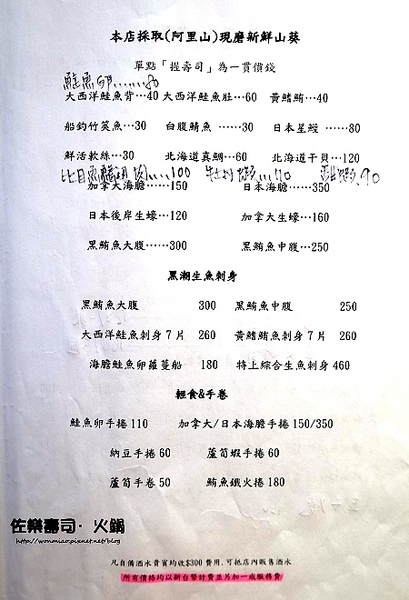 本店採取(阿里山)現磨新鮮山葵
單點「握壽司」為一貫價錢
鮭魚卵......80
大西洋鮭魚背…40 大西洋鮭魚肚…60 黃鰭鮪…40
船釣竹筴魚…30 白腹鯖魚……30 日本星鰻……80
鮮活軟絲…30 北海道真鯛…60 北海道干貝…120
比目魚鰭邊肉....100 牡丹蝦...110 甜蝦.90
加拿大海膽……150 日本海膽……350
日本後岸生蠔…120 加拿大生蠔…160
黑鮪魚大腹……300 黑鮪魚中腹…250
黑潮生魚刺身
黑鮪魚大腹 300 黑鮪魚中腹 250
大西洋鮭魚刺身7片 260 黃鰭鮪魚刺身7片 260
海膽鮭魚卵蘿蔓船 180 特上綜合生魚刺身460
輕食&手卷
鮭魚卵手捲110 加拿大/日本海膽手捲150/350
納豆手捲60 蘆筍蝦手捲60
蘆筍手卷50 鮪魚鐵火捲180
佐樂壽司·火鍋
http://wonmiao.pixnet.net/blog
凡自備酒水貴賓均收$300費用,可抵店內販售酒水
所有價格均以新台幣計費並另加一成服務費